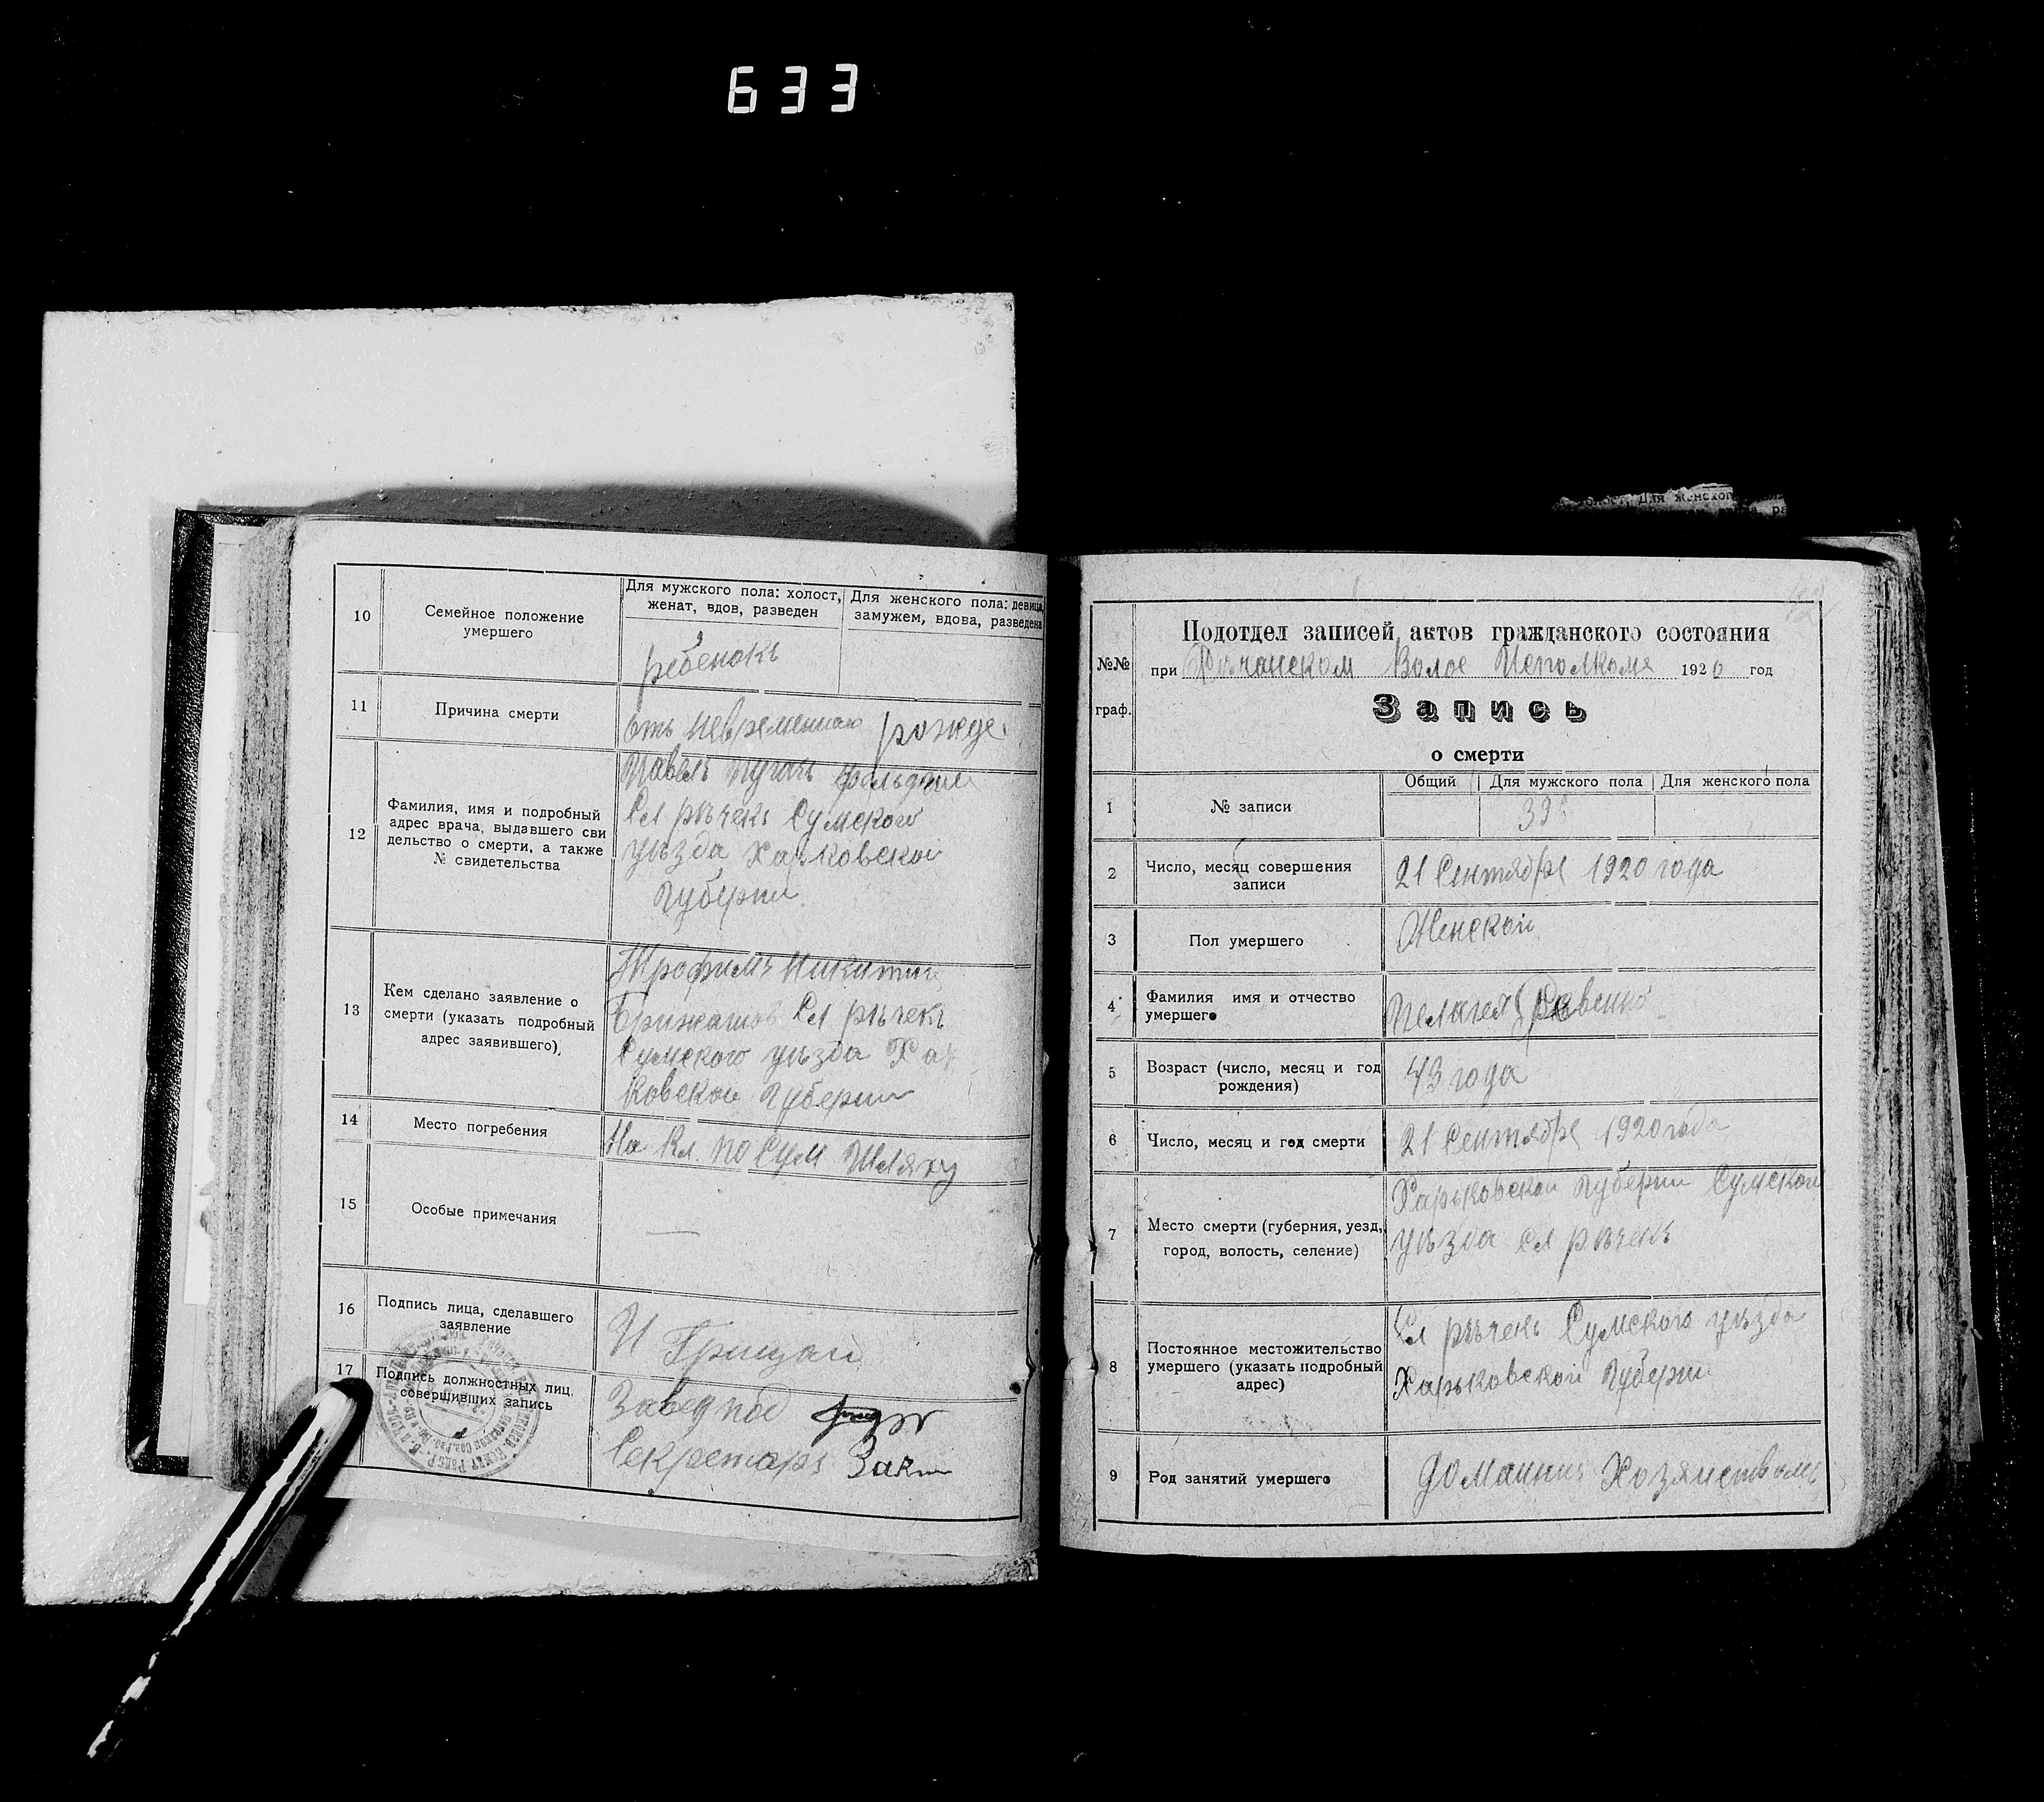 633
10
Семейное положение
умершего
Для мужского пола: холост,
женат, вдов, разведен
Для женского пола: девица,
замужем, вдова, разведена
ребенокъ
11
Причина смерти
отъ невременного рожде
12
Фамилия, имя и подробный
адрес врача, выдавшего сви
дельство о смерти, а также
№ свидетельства
Павелъ Пугачъ фельдше
Сл рѣчекъ Сумского
уѣзда Харьковской
Губернии
13
Кем сделано заявление о
смерти (указать подробный
адрес заявившего)
Трофимъ Никитин
Сл рѣчекъ
Сумского уѣзда Хар
ковской Губернии
14
Место погребения
На Кл. по Сум Шляху
15
Особые примечания
—
16
Подпись лица, сделавшего
заявление
И Грицай
17
Подпись должностных лиц,
совершивших запись
Завед под
Секретарь
№№
граф.
Подотдел записей актов гражданского состояния
при Рѣчанском Волос Исполкоме 1920 год
Запись
о смерти
1
№ записи
Общий
Для мужского пола
Для женского пола
2
Число, месяц совершения
записи
21 Сентября 1920 года
3
Пол умершего
Женской
4
Фамилия имя и отчество
умершего
Пелагея
5
Возраст (число, месяц и год
рождения)
43 года
6
Число, месяц и год смерти
21 Сентября 1920 года
7
Место смерти (губерния, уезд,
город, волость, селение)
Харьковской Губернии Сумской
уѣзда сл рѣчекъ
8
Постоянное местожительство
умершего (указать подробный
адрес)
Сл рѣчекъ Сумского уѣзда
Харьковской Губернии
9
Род занятий умершего
домашнимъ Хозяйствомъ